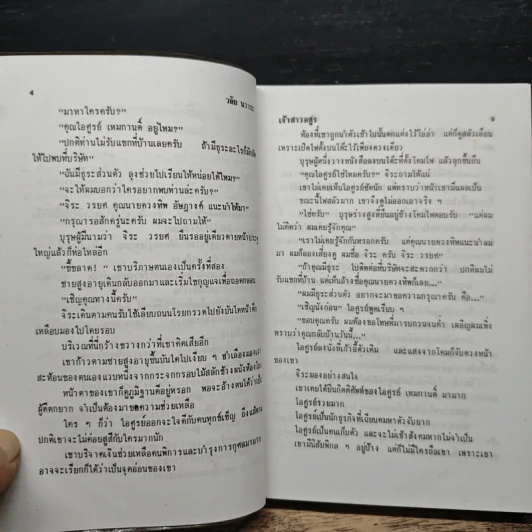 4
วลัย นวาระ
"มาหาใครครับ?"
"คุณไอศูรย์ เหมกานติ์ อยู่ไหม?"
"ปกติท่านไม่รับแขกที่บ้านเลยครับ ถ้ามีธุระอะไรก็มัก
ให้ไปพบที่บริษัท"
"ฉันมีธุระส่วนตัว ลุงช่วยไปเรียนให้หน่อยได้ไหม?"
"จะให้ผมบอกว่าใครอยากพบท่านล่ะครับ?"
"จิระ วรยศ คุณนายดวงทิพ อัษฎางค์ แนะนำให้มา"
"กรุณารอสักครู่นะครับ ผมจะไปถามให้"
บุรุษผู้มีนามว่า จิระ วรยศ ยืนรออยู่เดียวดายหน้าประตู
ใหญ่แล้วก็ห่อไหล่อีก
"ขี้ขลาด!" เขาบริภาษตนเองเป็นครั้งที่สอง
ชายสูงอายุเดินกลับออกมาและเริ่มไขกุญแจเพื่อถอดกลอน
"เชิญคุณทางนี้ครับ"
จิระเดินตามคนรับใช้เลียบถนนโรยกรวดไปยังบันไดหน้าตึก
เหลือบมองไปโดยรอบ
บริเวณที่นี่กว้างขวางกว่าที่เขาคิดเสียอีก
เขาก้าวตามชายสูงอายุขึ้นบันไดไปเงียบ ๆ ชำเลืองมองเงา
สะท้อนของตนเองแวบหนึ่งจากกระจกรอบไม้สลักข้างผนังห้องโถง
หน้าตาของเขาก็ดูภูมิฐานดีอยู่หรอก พอจะอ้างตนได้ว่าเป็น
ผู้ดีตกยาก จำเป็นต้องมาขอความช่วยเหลือ
ใคร ๆ ก็ว่า ไอศูรย์ออกจะใจดีกับคนทุกข์เข็ญ ถึงแม้ตาม
ปกติเขาจะไม่ค่อยสู่สีกับใครมากนัก
เขาบริจาคเงินช่วยเหลือคนพิการและบำรุงการกุศลมากมาย
อาจจะเรียกก็ได้ว่าเป็นจุดอ่อนของเขา
เจ้าสาวอสูร
๕
ห้องที่เขาถูกนำตัวเข้าไปนั้นตกแต่งไว้โอ่อ่า แต่ก็ดูสลัวเลือน
เพราะเปิดไฟตั้งบนโต๊ะไว้เพียงดวงเดียว
บุรุษผู้หนึ่งวางหนังสือลงบนโต๊ะที่ตั้งโคมไฟ แล้วลุกขึ้นยืน
"คุณไอศูรย์ใช่ไหมครับ?" จิระถามให้แน่
เขาไม่เคยเห็นไอศูรย์ชัดนัก แต่ทราบว่าหน้าเขามีแผลเป็น
ขณะนี้ไฟสลัวมาก เขาจึงดูไม่ออกเอาจริง ๆ
"ใช่ครับ" บุรุษร่างสูงที่ยืนอยู่ข้างโคมไฟตอบรับ "แต่ผม
ไม่คิดว่า ผมเคยรู้จักคุณ"
"เราไม่เคยรู้จักกันหรอกครับ แต่คุณนายดวงทิพแนะนำผม
มา ผมก็ลองเสี่ยงดู ผมชื่อ จิระ ครับ จิระ วรยศ"
"ถ้าคุณมีธุระ ไปติดต่อที่บริษัทจะสะดวกกว่า ปกติผมไม่
รับแขกที่บ้าน แต่เห็นอ้างชื่อคุณนายดวงทิพก็เลย..."
"ผมมีธุระส่วนตัว อยากจะมาขอความกรุณาครับ คือ..."
"เชิญนั่งก่อน" ไอศูรย์พูดเรียบ ๆ
"ขอบคุณครับ ผมต้องขอโทษที่มารบกวนจนค่ำ เผอิญผมเพิ่ง
ทราบว่าคุณกลับบ้านวันนี้..."
ไอศูรย์ลงนั่งที่เก้าอี้ตัวเดิม และแสงจากโคมก็จับดวงหน้า
ของเขา
จิระมองอย่างสนใจ
เขาเคยได้ยินกิตติศัพท์ของไอศูรย์ เหมกานติ์ มามาก
ไอศูรย์รวยมาก
ไอศูรย์เป็นนักธุรกิจที่เฉียบคมหาตัวจับยาก
ไอศูรย์เป็นคนเก็บตัว และจะไม่เข้าสังคมหากไม่จำเป็น
เขามีนิสัยพิกล ๆ อยู่บ้าง แต่ก็ไม่มีใครถือเขา เพราะเขา